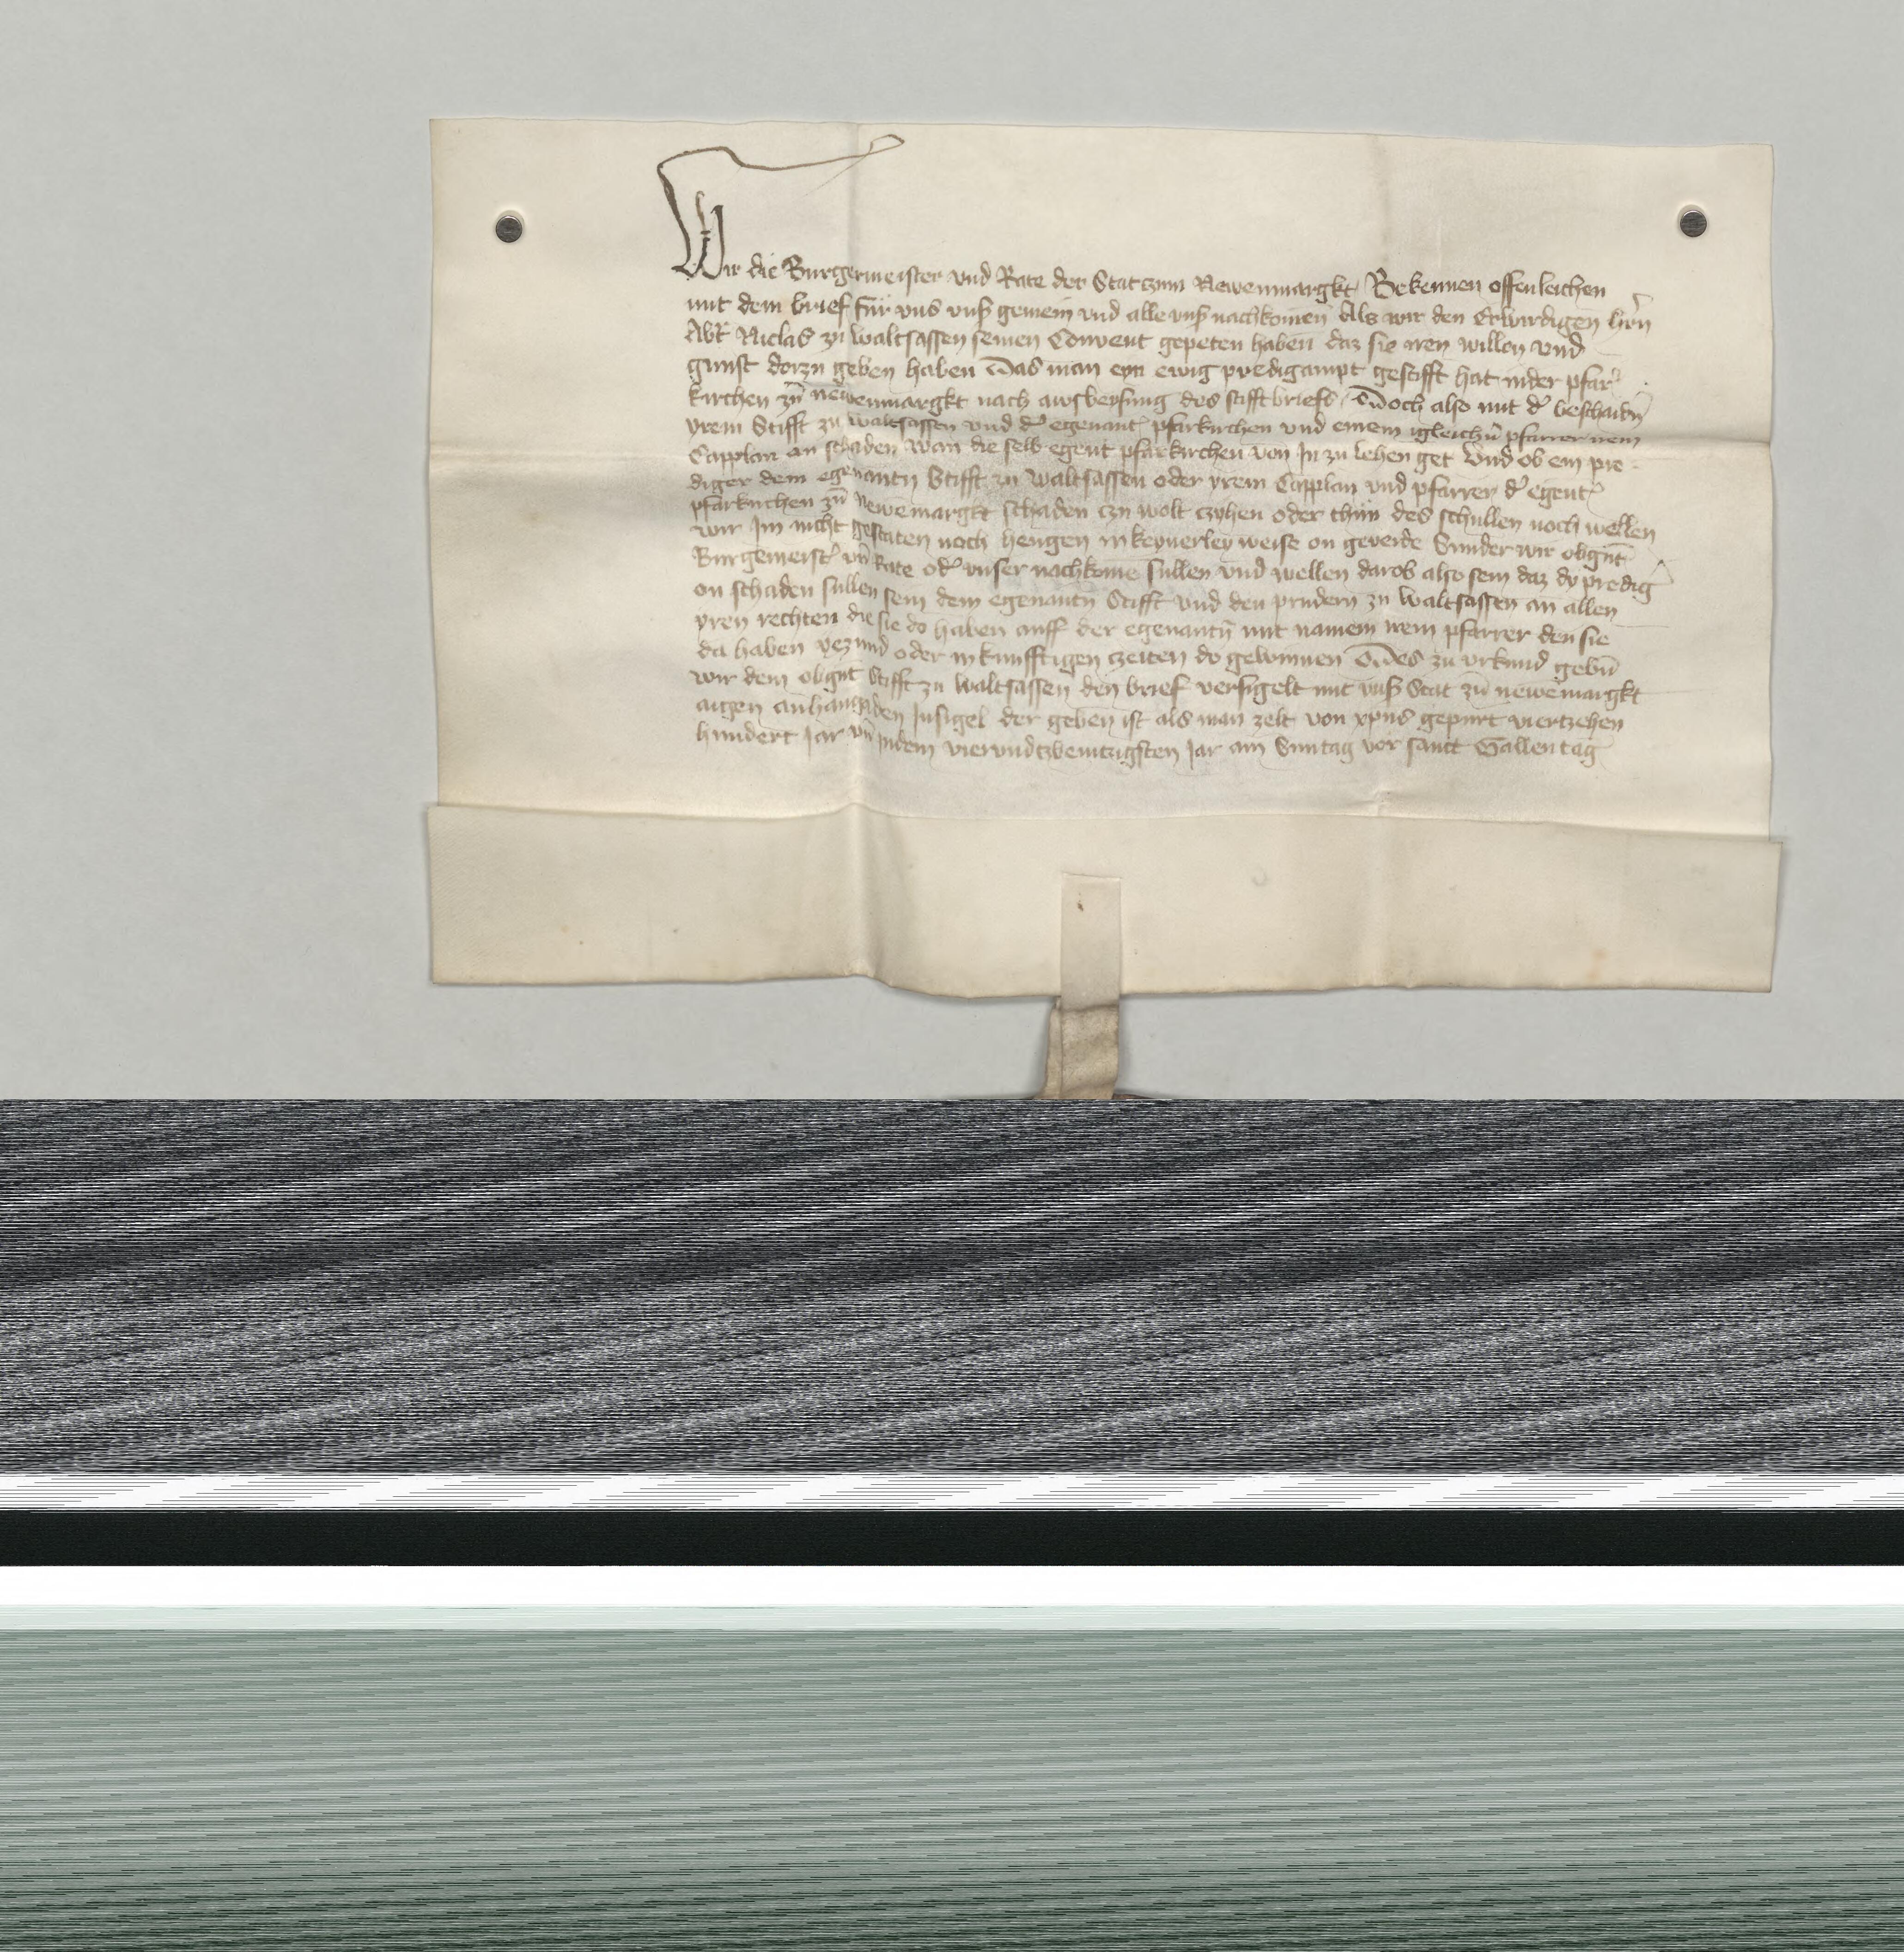 Wir die Burgermeister vnd Rate der Stat zum Newenmargkt Bekennen offenleichen
mit dem brief für vns vnß gemein vnd alle vnß nachkomen Als wir den Erwirdigen hrn
Abt Niclas zu waltsassen seinen Convent gepeten haben daz sie iren willen vnd
gunst dorzu geben haben Das man eyn ewig predigampt gestifft hat inder pfar
kirchen zu newenmargkt nach awsbeysung des stifftbriefs Doch also mit der
yrem Stifft zu waltsassen vnd der egenant pfarkirchen vnd einem igleichn pfarrer irem
Capplan an schaden wan die selb egent pfarkirchen von In zu lehen get Vnd ob ein pre-
diger dem egenantn Stifft zu waltsassen oder yrem Capplan vnd pfarrer der egent
pfarkirchen zu Newemargkt schaden czu wolt czyhen oder thun des schullen noch wellen
wir Im nicht gestaten noch hengen in keynerley weise on geverde Sunder wir obgnt
Burgemeist vn Rate od vnser nachkome sullen vnd wellen darob also sein daz dy predig
on schaden sullen sein dem egenantn Stifft vnd den prudern zu waltsassen an allen
yren rechten die sie do haben auff der egenantn mit namen irem pfarrer den sie
da haben yezund oder in kunfftigen czeiten do gewinnen Des zu vrkund gebn
wir dem obgnt Stifft zu waltsassen den brief versigelt mit vnß Stat zu newemargkt
aigen anhangaden Insigel der geben ist als man zelt von xpus gepurt viertzehen
hundert Jar vn indem viervndtzbeintzigsten Jar am Suntag vor sant Gallen tag